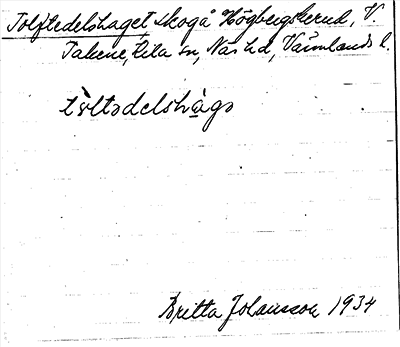 Tolftedelshaget, skog å Högbergskerud, V.
Takene, Lila sn, Näs hd, Värmlands l.
tôltədelshàgə
Britta Johansson 1934